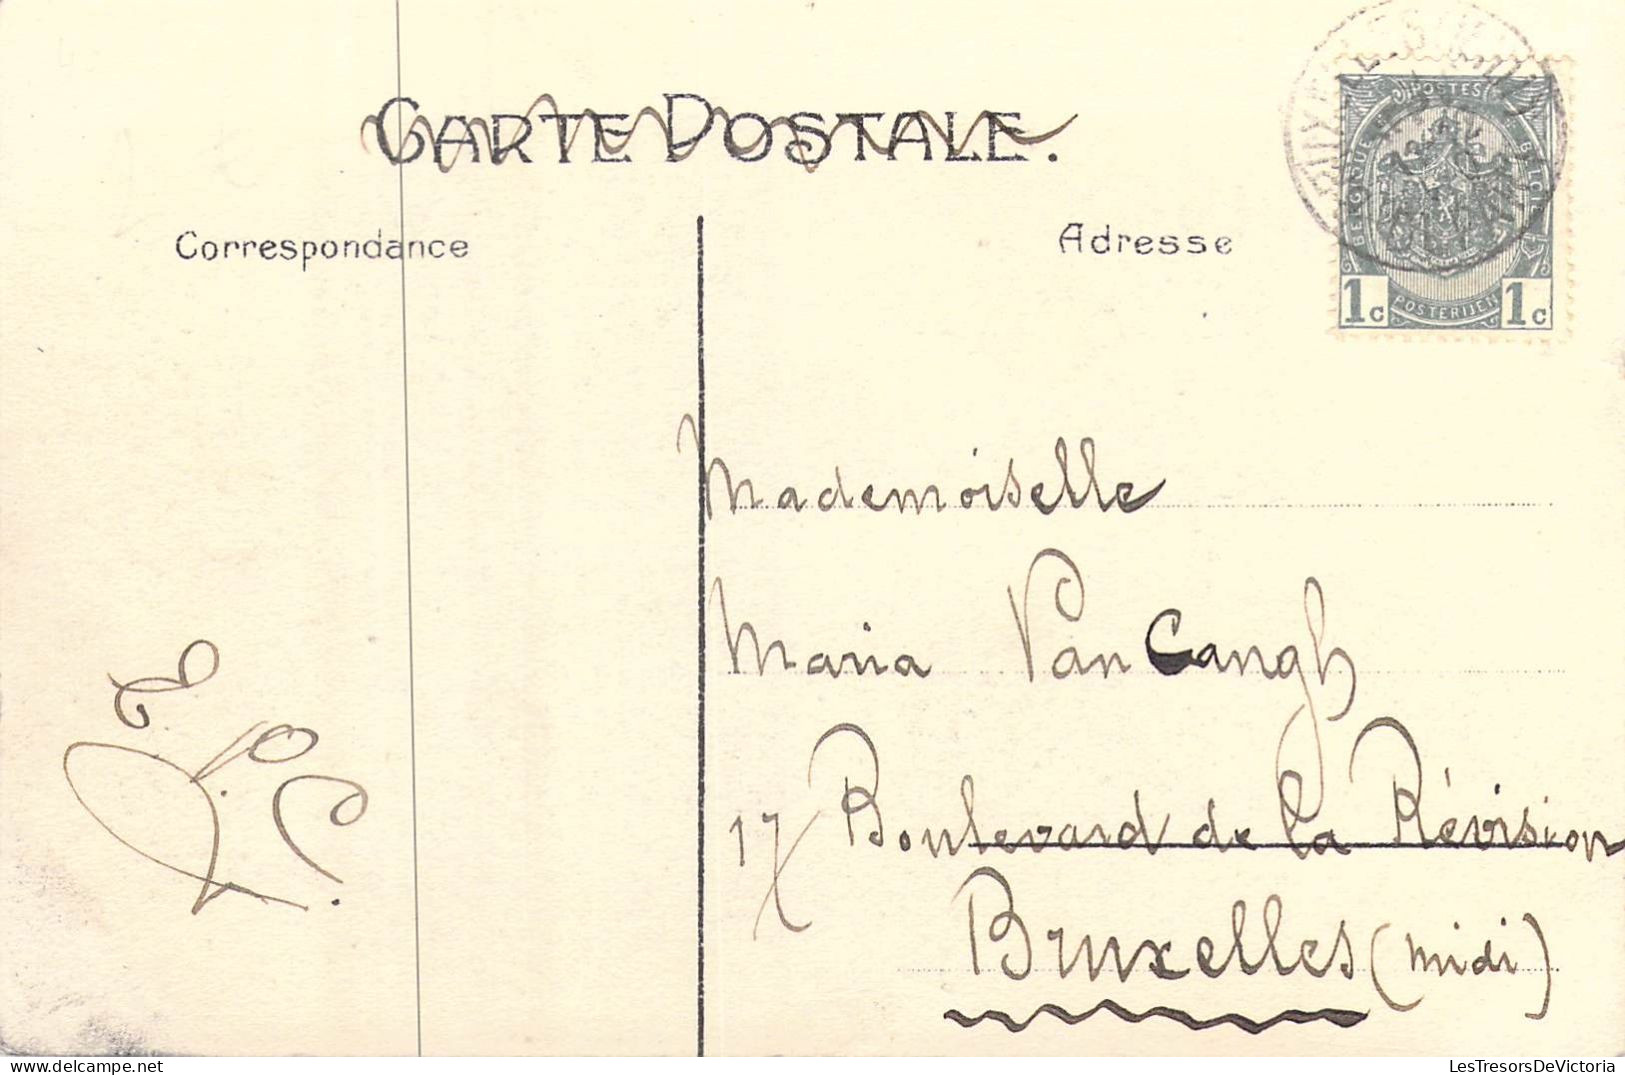 CARTE POSTALE.
Correspondance
Adresse
POSTES
BELGIQUE
BELGIË
1c POSTERIJEN 1c
Mademoiselle
Maria Van Cangh
17 Boulevard de la Révision
Bruxelles (midi)
LesTresorsDeVictoria